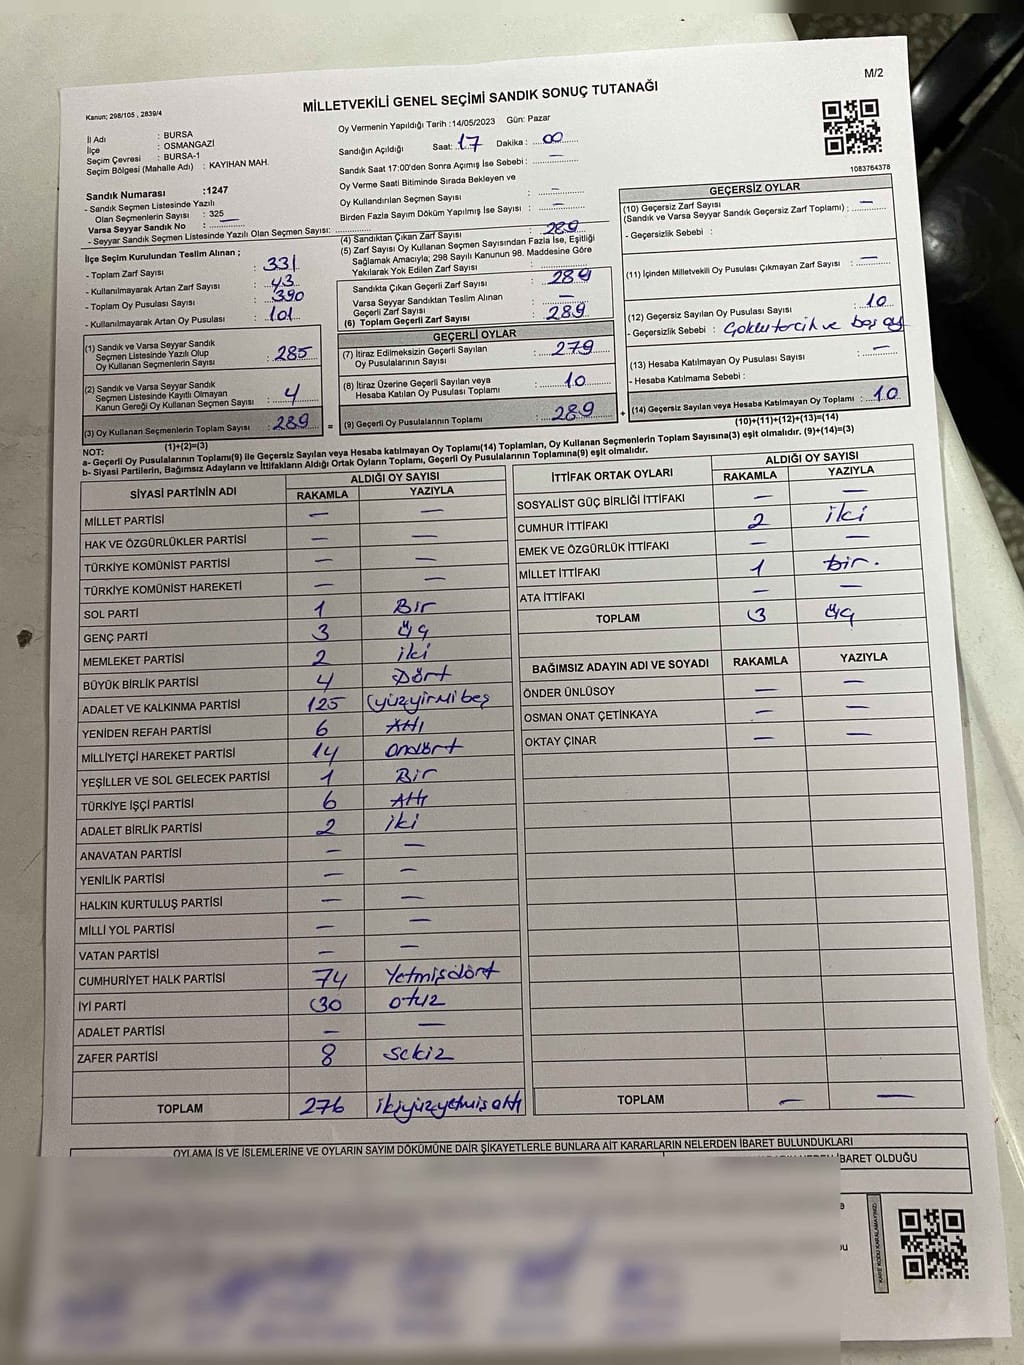 M/2
Kanun; 298/105 , 2839/4
MİLLETVEKİLİ GENEL SEÇİMİ SANDIK SONUÇ TUTANAĞI
İl Adı : BURSA
İlçe : OSMANGAZİ
Seçim Çevresi : BURSA-1
Seçim Bölgesi (Mahalle Adı) : KAYIHAN MAH.
Oy Vermenin Yapıldığı Tarih :14/05/2023 Gün: Pazar
Sandığın Açıldığı Saat: 17 Dakika : 00
Sandık Saat 17:00'den Sonra Açımış İse Sebebi : —
Oy Verme Saati Bitiminde Sırada Bekleyen ve
Oy Kullandırılan Seçmen Sayısı : —
Birden Fazla Sayım Döküm Yapılmış İse Sayısı : —
1083764378
Sandık Numarası :1247
- Sandık Seçmen Listesinde Yazılı
Olan Seçmenlerin Sayısı : 325
Varsa Seyyar Sandık No : —
- Seyyar Sandık Seçmen Listesinde Yazılı Olan Seçmen Sayısı:
İlçe Seçim Kurulundan Teslim Alınan ;
- Toplam Zarf Sayısı : 331
- Kullanılmayarak Artan Zarf Sayısı : 43
- Toplam Oy Pusulası Sayısı : 390
- Kullanılmayarak Artan Oy Pusulası : 101
(1) Sandık ve Varsa Seyyar Sandık
Seçmen Listesinde Yazılı Olup
Oy Kullanan Seçmenlerin Sayısı : 285
(2) Sandık ve Varsa Seyyar Sandık
Seçmen Listesinde Kayıtlı Olmayan
Kanun Gereği Oy Kullanan Seçmen Sayısı : 4
(3) Oy Kullanan Seçmenlerin Toplam Sayısı : 289
(1)+(2)=(3)
(4) Sandıktan Çıkan Zarf Sayısı : 289
(5) Zarf Sayısı Oy Kullanan Seçmen Sayısından Fazla İse, Eşitliği
Sağlamak Amacıyla; 298 Sayılı Kanunun 98. Maddesine Göre
Yakılarak Yok Edilen Zarf Sayısı :
Sandıkta Çıkan Geçerli Zarf Sayısı : 289
Varsa Seyyar Sandıktan Teslim Alınan
Geçerli Zarf Sayısı : —
(6) Toplam Geçerli Zarf Sayısı : 289
GEÇERLİ OYLAR
(7) İtiraz Edilmeksizin Geçerli Sayılan
Oy Pusulalarının Sayısı : 279
(8) İtiraz Üzerine Geçerli Sayılan veya
Hesaba Katılan Oy Pusulası Toplamı : 10
(9) Geçerli Oy Pusulalarının Toplamı : 289
GEÇERSİZ OYLAR
(10) Geçersiz Zarf Sayısı
(Sandık ve Varsa Seyyar Sandık Geçersiz Zarf Toplamı) : —
- Geçersizlik Sebebi :
(11) İçinden Milletvekili Oy Pusulası Çıkmayan Zarf Sayısı : —
(12) Geçersiz Sayılan Oy Pusulası Sayısı : 10
- Geçersizlik Sebebi : ve boş oy
(13) Hesaba Katılmayan Oy Pusulası Sayısı : —
- Hesaba Katılmama Sebebi :
(14) Geçersiz Sayılan veya Hesaba Katılmayan Oy Toplamı : 10
(10)+(11)+(12)+(13)=(14)
NOT:
a- Geçerli Oy Pusulalarının Toplamı(9) ile Geçersiz Sayılan veya Hesaba katılmayan Oy Toplamı(14) Toplamları, Oy Kullanan Seçmenlerin Toplam Sayısına(3) eşit olmalıdır. (9)+(14)=(3)
b- Siyasi Partilerin, Bağımsız Adayların ve İttifakların Aldığı Ortak Oyların Toplamı, Geçerli Oy Pusulalarının Toplamına(9) eşit olmalıdır.
SİYASİ PARTİNİN ADI ALDIĞI OY SAYISI
RAKAMLA YAZIYLA
MİLLET PARTİSİ — —
HAK VE ÖZGÜRLÜKLER PARTİSİ — —
TÜRKİYE KOMÜNİST PARTİSİ — —
TÜRKİYE KOMÜNİST HAREKETİ — —
SOL PARTİ 1 Bir
GENÇ PARTİ 3 Üç
MEMLEKET PARTİSİ 2 iki
BÜYÜK BİRLİK PARTİSİ 4 Dört
ADALET VE KALKINMA PARTİSİ 125 yüzyirmibeş
YENİDEN REFAH PARTİSİ 6 Altı
MİLLİYETÇİ HAREKET PARTİSİ 14 Ondört
YEŞİLLER VE SOL GELECEK PARTİSİ 1 Bir
TÜRKİYE İŞÇİ PARTİSİ 6 Altı
ADALET BİRLİK PARTİSİ 2 iki
ANAVATAN PARTİSİ — —
YENİLİK PARTİSİ — —
HALKIN KURTULUŞ PARTİSİ — —
MİLLİ YOL PARTİSİ — —
VATAN PARTİSİ — —
CUMHURİYET HALK PARTİSİ 74 Yetmişdört
İYİ PARTİ 30 otuz
ADALET PARTİSİ — —
ZAFER PARTİSİ 8 sekiz
TOPLAM 276 ikiyüzyetmişaltı
İTTİFAK ORTAK OYLARI ALDIĞI OY SAYISI
RAKAMLA YAZIYLA
SOSYALİST GÜÇ BİRLİĞİ İTTİFAKI — —
CUMHUR İTTİFAKI 2 iki
EMEK VE ÖZGÜRLÜK İTTİFAKI — —
MİLLET İTTİFAKI 1 bir.
ATA İTTİFAKI — —
TOPLAM 3 üç
BAĞIMSIZ ADAYIN ADI VE SOYADI RAKAMLA YAZIYLA
ÖNDER ÜNLÜSOY — —
OSMAN ONAT ÇETİNKAYA — —
OKTAY ÇINAR — —
TOPLAM — —
OYLAMA İŞ VE İŞLEMLERİNE VE OYLARIN SAYIM DÖKÜMÜNE DAİR ŞİKAYETLERLE BUNLARA AİT KARARLARIN NELERDEN İBARET BULUNDUKLARI
İBARET OLDUĞU
KARE KODU KARALAMAYINIZ!